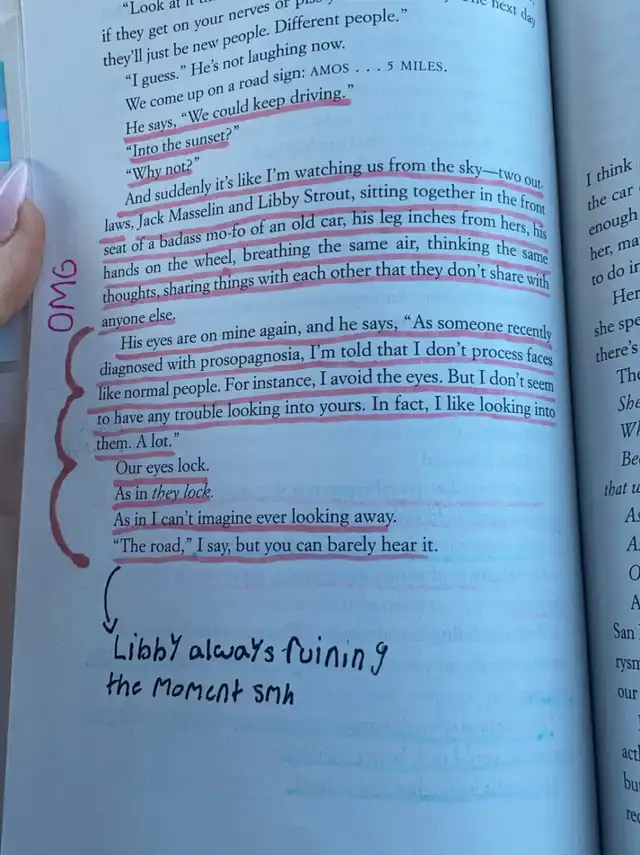 "Look at it th
if they get on your nerves or piss y The next day
they'll just be new people. Different people."
"I guess." He's not laughing now.
We come up on a road sign: AMOS . . . 5 MILES.
He says, "We could keep driving."
"Into the sunset?"
"Why not?"
And suddenly it's like I'm watching us from the sky—two out-
laws, Jack Masselin and Libby Strout, sitting together in the front
seat of a badass mo-fo of an old car, his leg inches from hers, his
hands on the wheel, breathing the same air, thinking the same
thoughts, sharing things with each other that they don't share with
anyone else.
OMG
His eyes are on mine again, and he says, "As someone recently
diagnosed with prosopagnosia, I'm told that I don't process faces
like normal people. For instance, I avoid the eyes. But I don't seem
to have any trouble looking into yours. In fact, I like looking into
them. A lot."
Our eyes lock.
As in they lock.
As in I can't imagine ever looking away.
"The road," I say, but you can barely hear it.
Libby always ruining
the moment smh
I think
the car
enough
her, ma
to do in
Her
she spe
there's
The
She
W
Be
that u
A
A
O
A
San
rysm
our
act
bu
rec